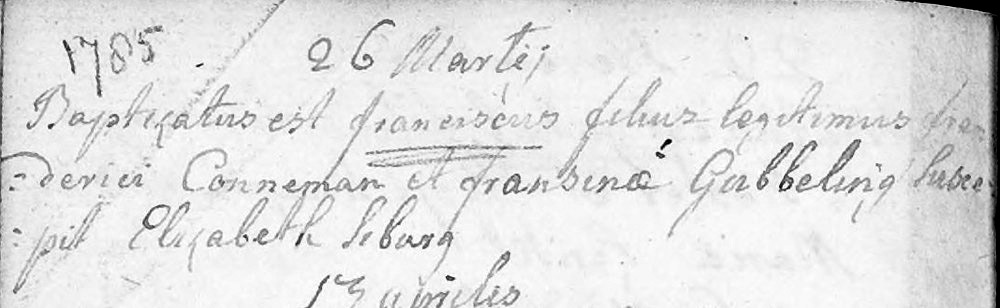 1785 26 Martij
Baptizatus est franciscus filius legitimus fre
=derici Conneman et fransinæ Gubbeling susce
=pit Elizabeth Seburg
13 aprilis